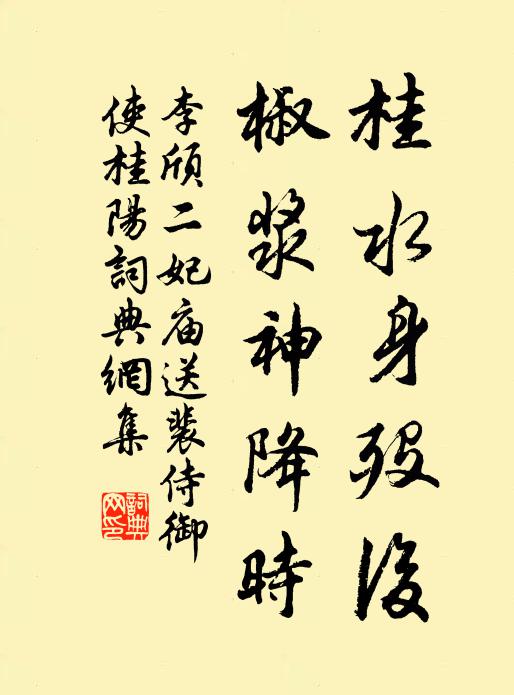 桂水身殁後
椒漿神降時
李頎二妃庙送裴侍御
使桂陽詞典網集
詞典網印